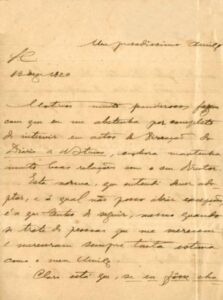 Meu presadissimo Amigo
1920
Motivos muito ponderosos fazem
com que eu me abstenha por completo
de intervir em actos da Direcção do
Diario de Noticias, embora mantenha
muito boas relações com o seu Director.
Esta norma, que entendi dever ado-
ptar, e á qual não posso abrir excepções,
é a que tenho de seguir, mesmo quando
se trate de pessoas que me merecem
e mereceram sempre tanta estima
como o meu Amigo.
Claro está que se eu fôsse